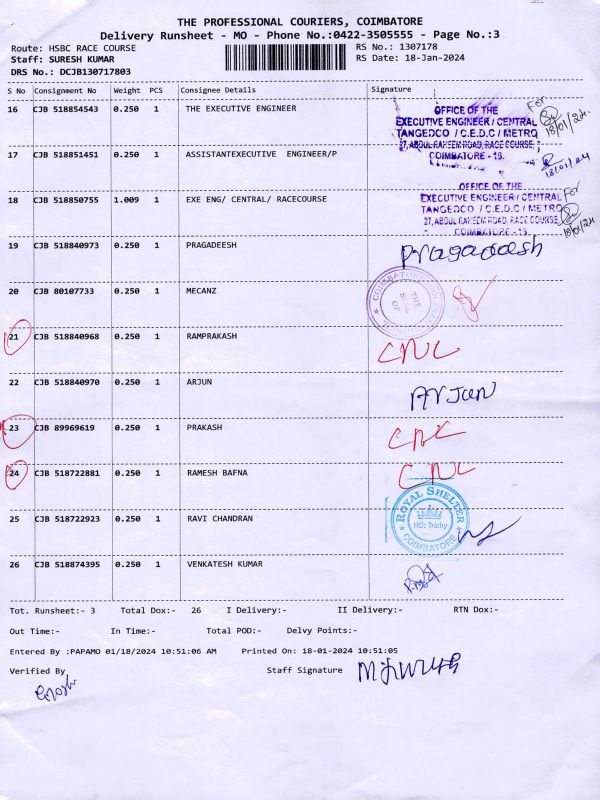 THE PROFESSIONAL COURIERS, COIMBATORE
Delivery Runsheet - MO - Phone No.:0422-3505555 - Page No.:3
Route: HSBC RACE COURSE
RS No.: 1307178
Staff: SURESH KUMAR
RS Date: 18-Jan-2024
DRS No.: DCJB130717803
S No Consignment No Weight PCS Consignee Details Signature
16 CJB 518854543 0.250 1 THE EXECUTIVE ENGINEER
OFFICE OF THE
EXECUTIVE ENGINEER / CENTRAL
TANGEDCO / C.E.D.C / METRO
27, ABDUL RAHEEM ROAD, RACE COURSE,
COIMBATORE - 18.
For
18/01/24
17 CJB 518851451 0.250 1 ASSISTANTEXECUTIVE ENGINEER/P
18/01/24
18 CJB 518850755 1.009 1 EXE ENG/ CENTRAL/ RACECOURSE
OFFICE OF THE
EXECUTIVE ENGINEER / CENTRAL
TANGEDCO / C.E.D.C / METRO
27, ABDUL RAHEEM ROAD, RACE COURSE,
COIMBATORE - 18.
For
18/01/24
19 CJB 518840973 0.250 1 PRAGADEESH
Pragadeesh
20 CJB 80107733 0.250 1 MECANZ
COIMBATORE
21 CJB 518840968 0.250 1 RAMPRAKASH
CNC
22 CJB 518840970 0.250 1 ARJUN
ArJun
23 CJB 89969619 0.250 1 PRAKASH
CNC
24 CJB 518722881 0.250 1 RAMESH BAFNA
CNC
25 CJB 518722923 0.250 1 RAVI CHANDRAN
ROYAL SHELTER
HO: Trichy
COIMBATORE
26 CJB 518874395 0.250 1 VENKATESH KUMAR
Tot. Runsheet:- 3 Total Dox:- 26 I Delivery:- II Delivery:- RTN Dox:-
Out Time:- In Time:- Total POD:- Delvy Points:-
Entered By :PAPAMO 01/18/2024 10:51:06 AM Printed On: 18-01-2024 10:51:05
Verified By Staff Signature